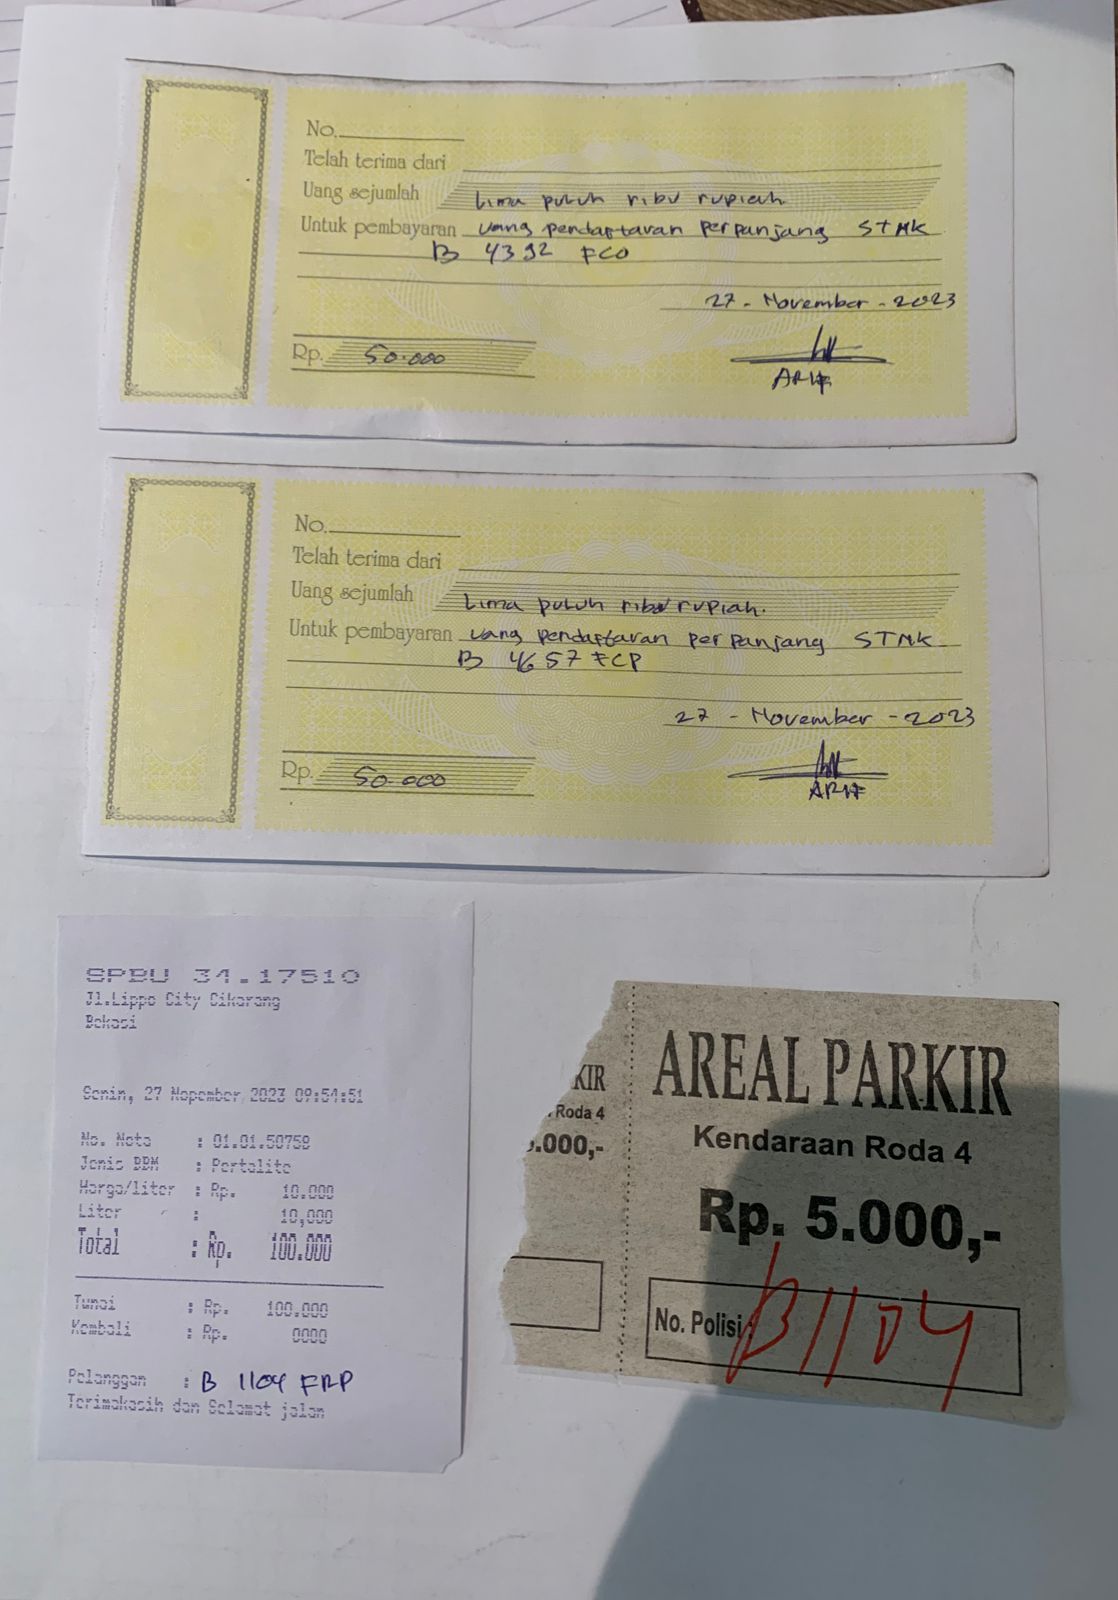 No.
Telah terima dari
Uang sejumlah Lima puluh ribu rupiah
Untuk pembayaran uang pendaftaran perpanjang STNK
B 4392 FCO
27 - November - 2023
Rp. 50.000
ARIF
No.
Telah terima dari
Uang sejumlah Lima puluh ribu rupiah.
Untuk pembayaran uang pendaftaran perpanjang STNK
B 4657 FCP
27 - November - 2023
Rp. 50.000
ARIF
SPBU 34.17510
Jl.Lippo City Cikarang
Bekasi
Senin, 27 Nopember 2023 09:54:51
No. Nota : 01.01.50758
Jenis BBM : Pertalite
Harga/liter : Rp. 10.000
Liter : 10,000
Total : Rp. 100.000
Tunai : Rp. 100.000
Kembali : Rp. 0000
Pelanggan : B 1104 FRP
Terimakasih dan Selamat jalan
KIR
Roda 4
.000,-
AREAL PARKIR
Kendaraan Roda 4
Rp. 5.000,-
No. Polisi : B 1104